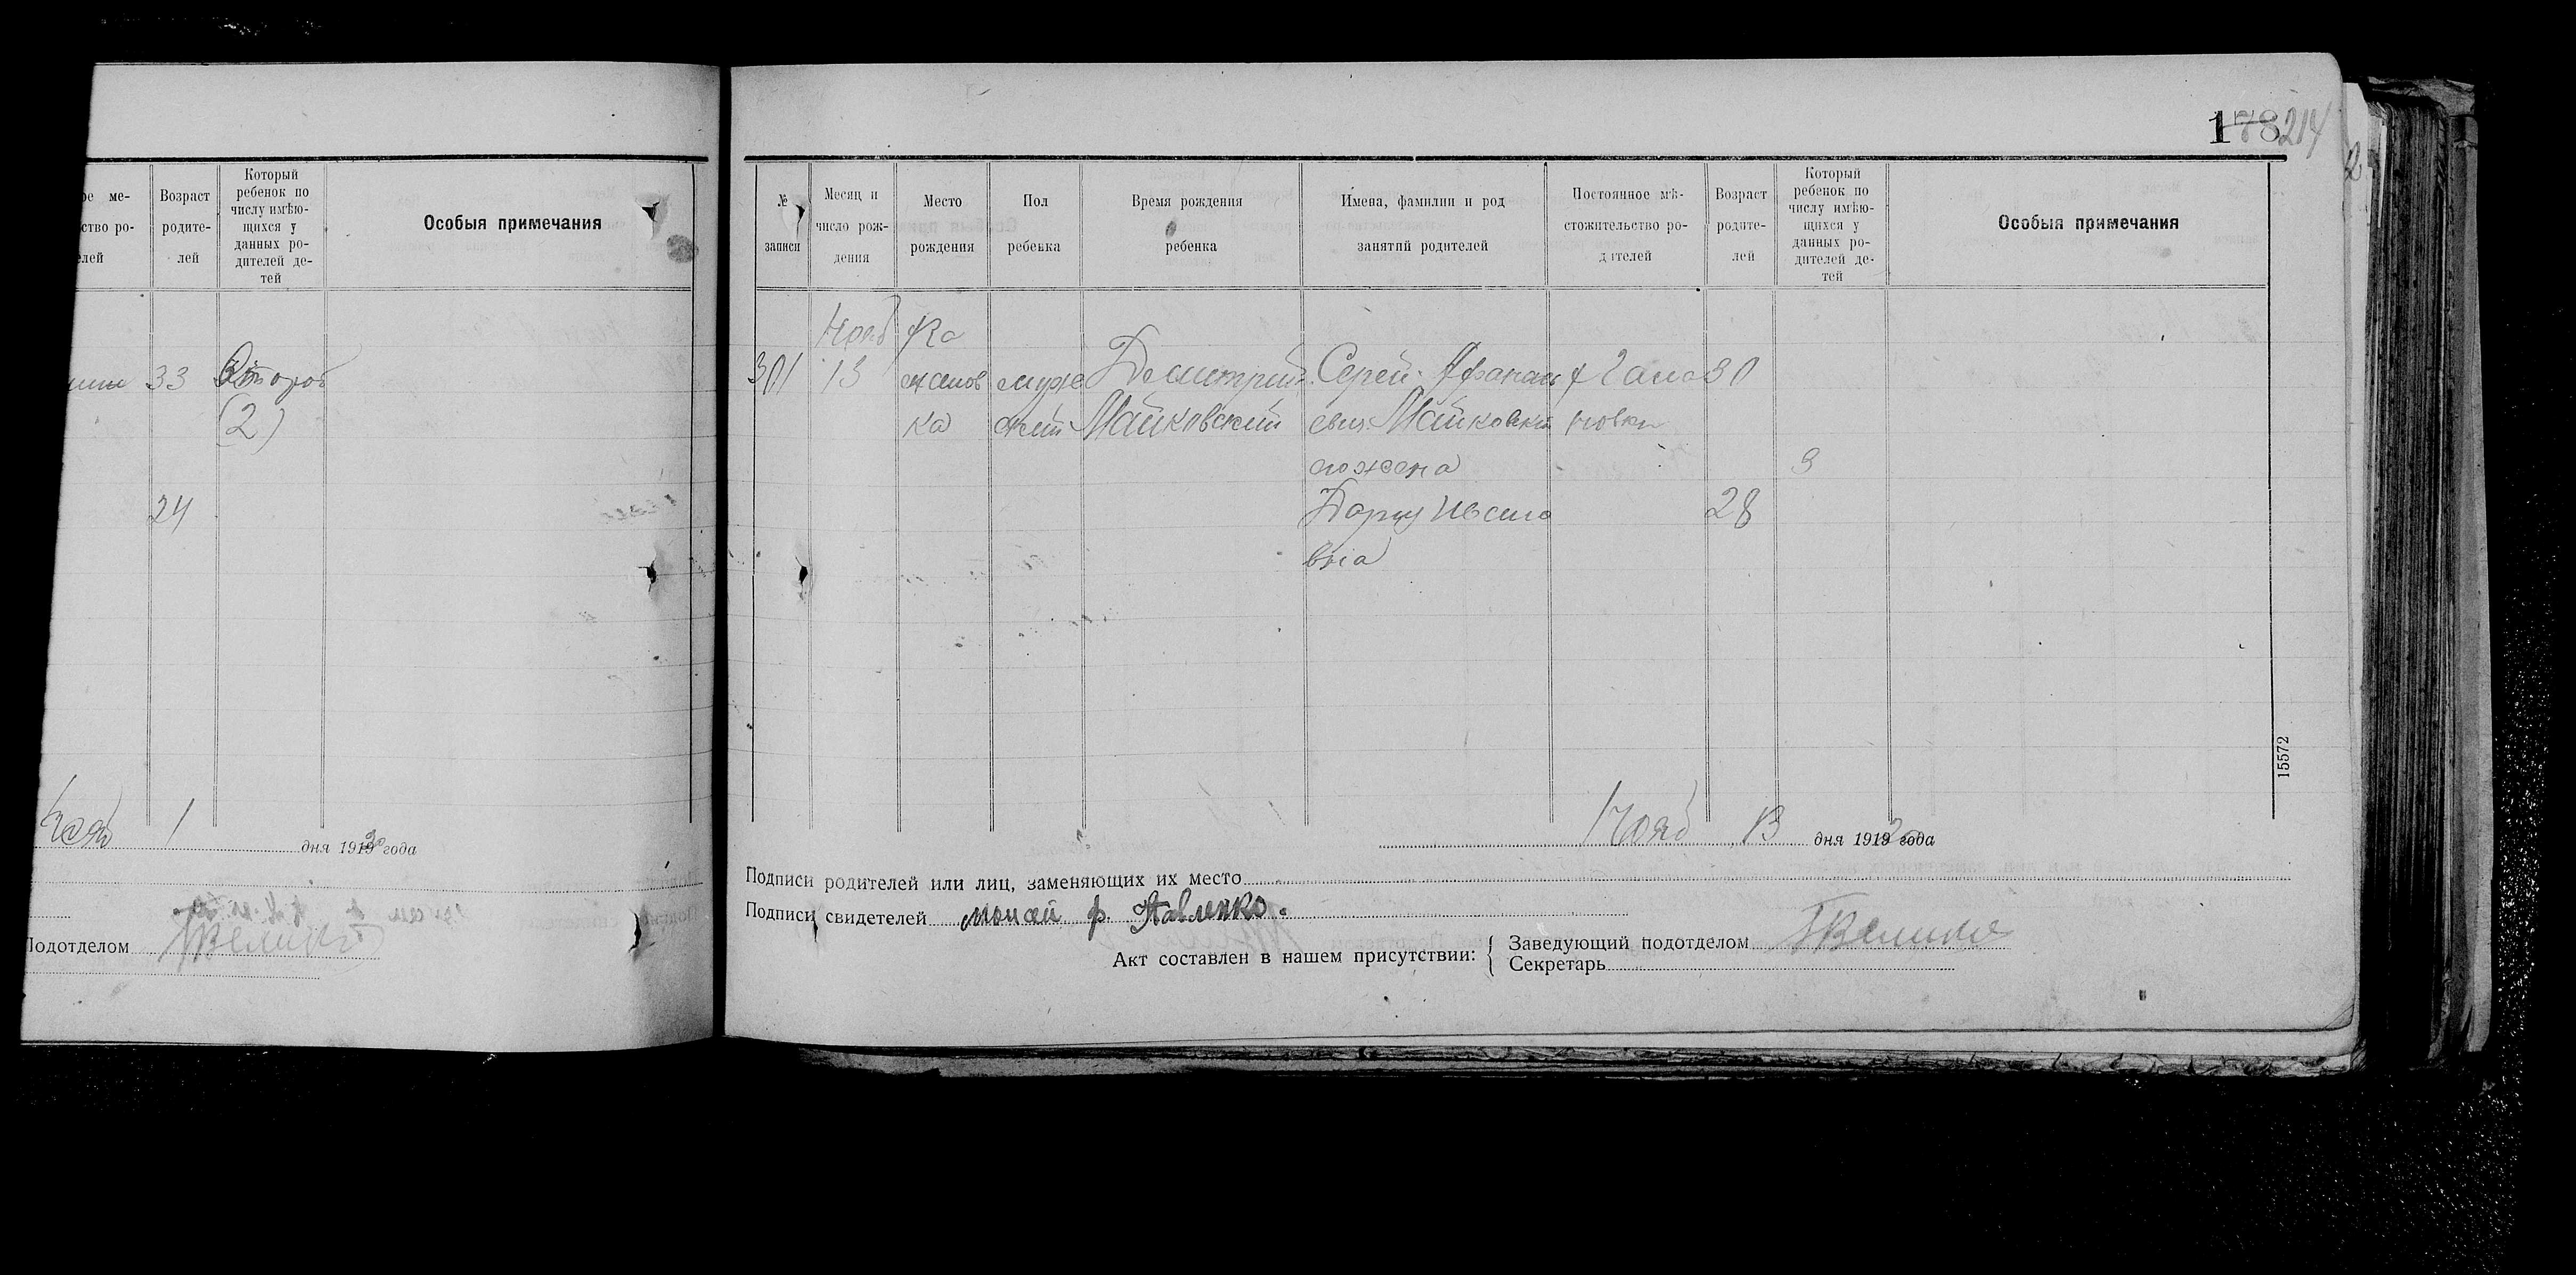 ое ме-
ство ро-
елей
Возраст
родите-
лей
Который
ребенок по
числу имѣю-
щихся у
данных ро-
дителей де-
тей
Особыя примечания
33 Второй
(2)
24
Нояб 1 дня 1920 года
Подотделом
178 214
№
записи
Месяц и
число рож-
дения
Место
рождения
Пол
ребенка
Время рождения
ребенка
Имена, фамилии и род
занятий родителей
Постоянное мѣ-
стожительство ро-
дителей
Возраст
родите-
лей
Который
ребенок по
числу имѣю-
щихся у
данных ро-
дителей де-
тей
Особыя примечания
Нояб
301 13 муж Дмитрий Сергей Афанась 30
ка ской Майковский евич Майковский новки
его жена 3
Дарья Ивано 28
вна
15572
Нояб 13 дня 1920 года
Подписи родителей или лиц, заменяющих их место
Подписи свидетелей Моисей ф. Павленко
Акт составлен в нашем присутствии: { Заведующий подотделом
Секретарь